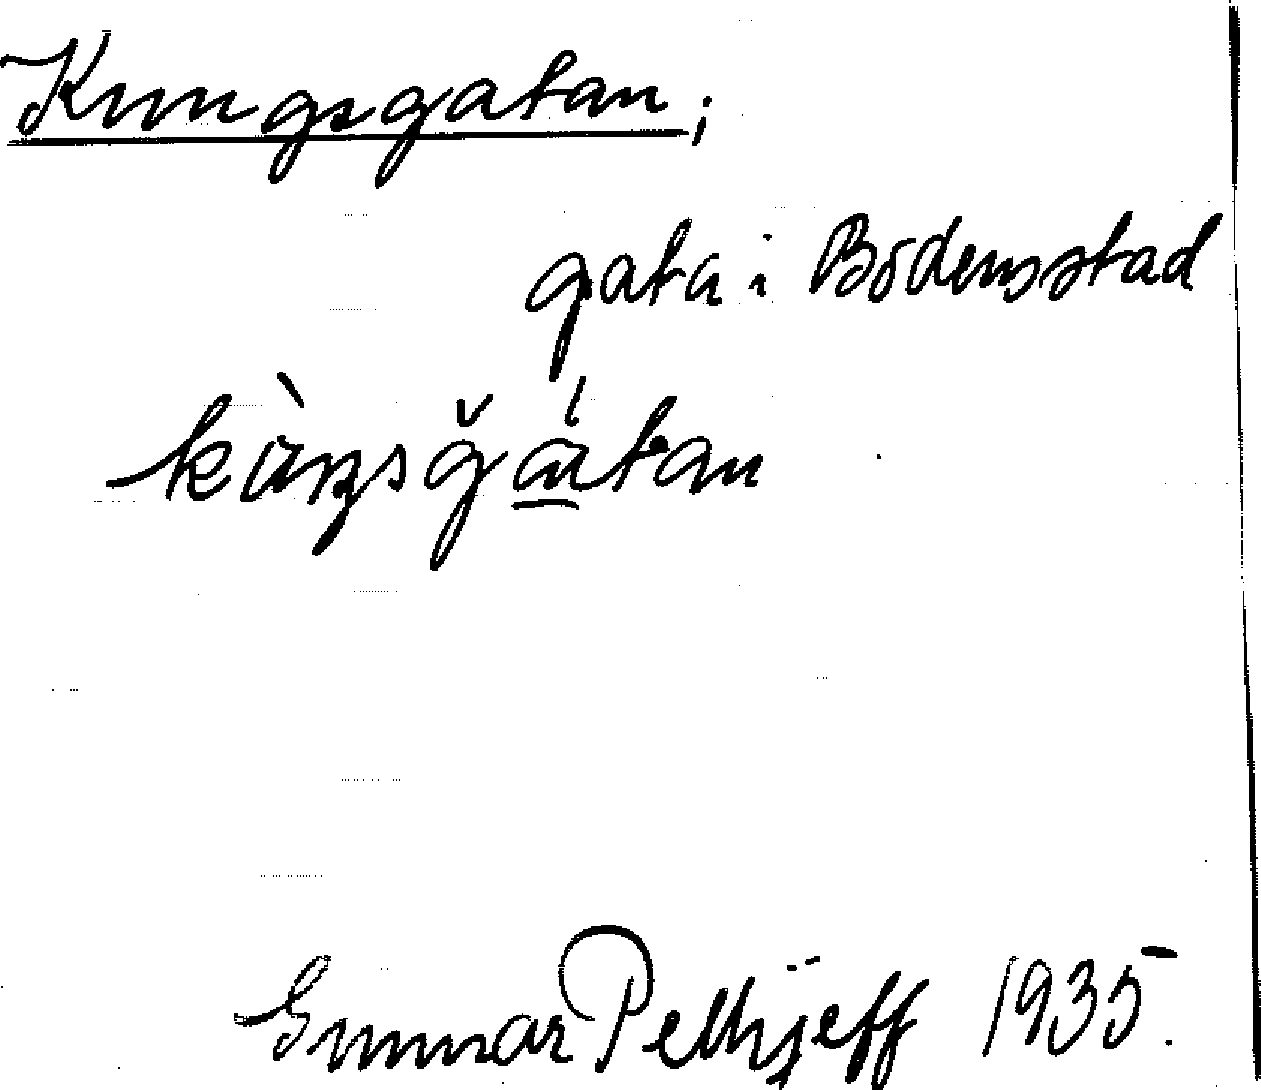 Kungsgatan;
gata i Bodens stad
kàŋsğátan
Gunnar Pellijeff 1935.